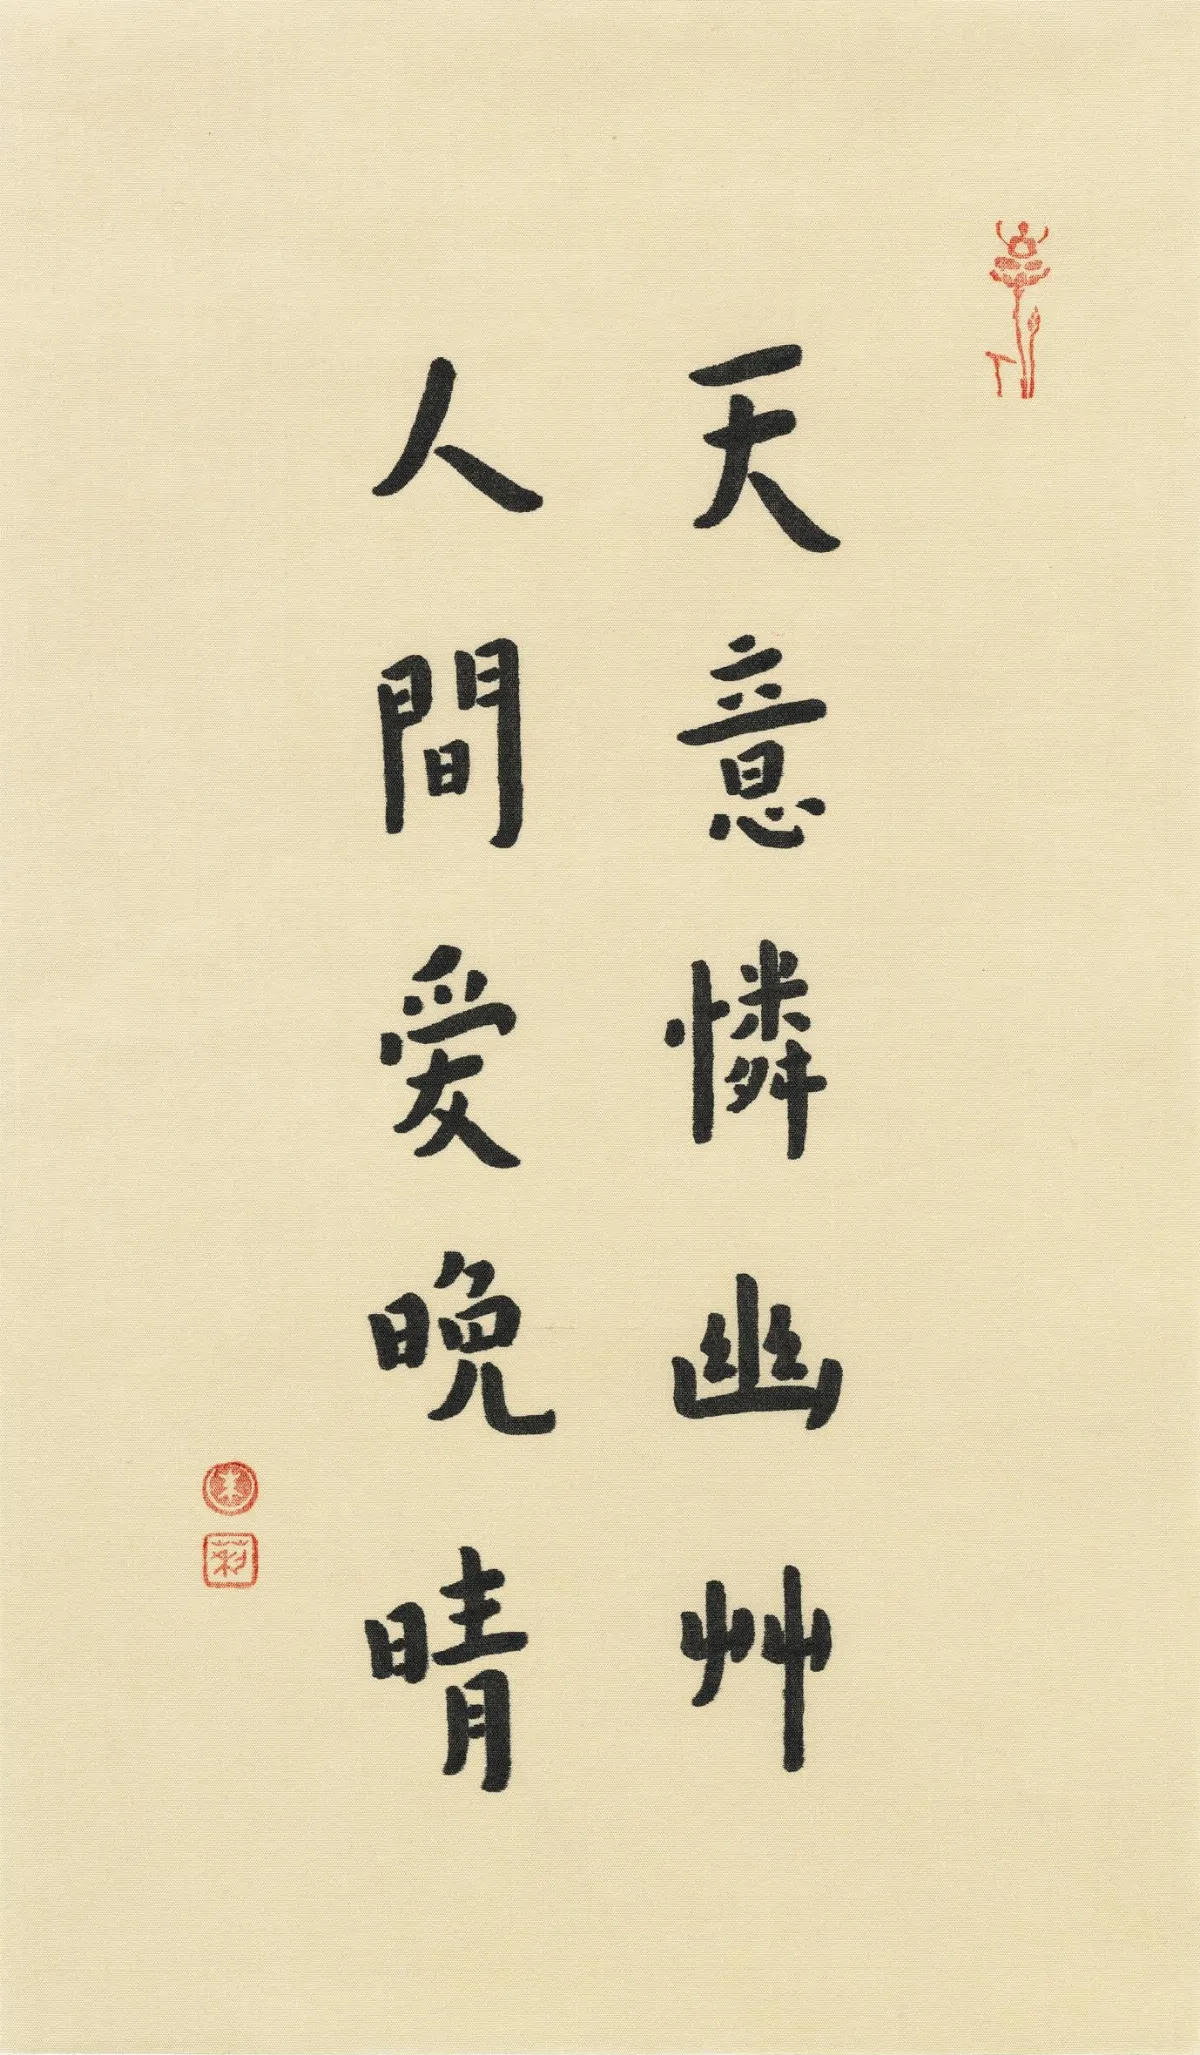 天意憐幽艸
人間爱晚晴